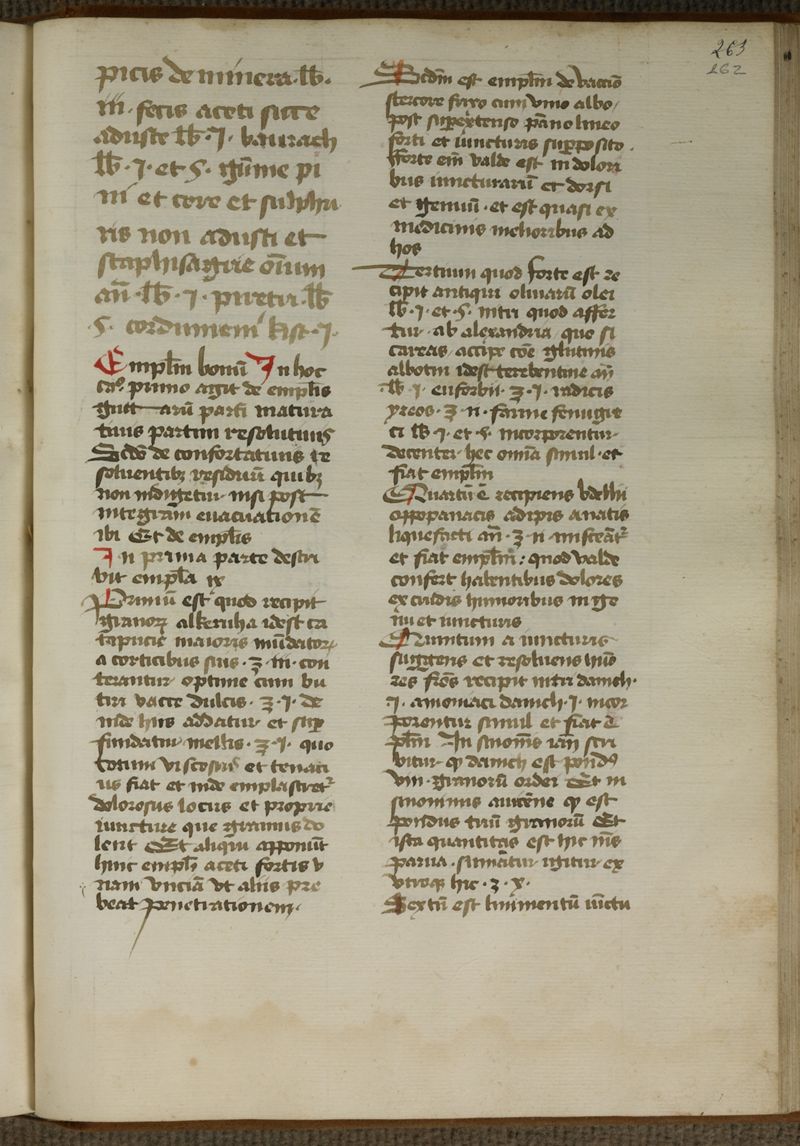 263
262
picis de minera · lb ·
iii · fecis aceti sicce
aduste lb · i · baurach
lb · i · et s · gũme pi
ni et cere et sulphu
ris non adusti et
staphisagrie oĩum
añ · lb · i · piretri lb
s · cordumeni kist · i ·
Emplm bonũ In hoc
ca° primo agit de emplis
gutt arũ parti matura
tiuis partim resolutiuis
Scdo de confortatiuis re
soluentibꝫ residuũ quibꝫ
non indigetur nisi post
integram euacuationẽ
ibi Et de emplis
In prima parte descri
bit empla ix
Primũ est quod recipit
granoꝝ alkeruha idest ca
tapucie maioris mũdatoꝝ
a corticibus suis · ʒ · iii · con
terantur optime cum bu
tiri vacce dulcis · ʒ · i · de
inde hiis addatur et sup
fundatur mellis · ʒ · i · quo
totum viscosius et tenaci
us fiat et inde emplastret͛
dolorosus locus et proprie
iuncture que gramius do
lent Et aliqui apponũt
huic emplo aceti fortis v
nam vnciã vt aliis pre
beat penetrationem ·
Scdm est emplm de vaccĩo
stercore sicco cum vino albo
post supextenso pãno lineo
forti et iuncturis supposito ·
fforte eni valde est in dolori
bus iuncturarũ et dorsi
et genuũ · et est quasi ex
medicinis melioribus ad
hos
Tertium quod forte est re
cipit antiqui oliuarũ olei
lb · i · et · s · nitri quod affer
tur · ab alexandria que si
careas accipe cõe glutinis
albotin idest terebentine añ
lb · i · euforbii · ʒ · i · radicis
yreos · ʒ · ii · farine fenugre
ci lb · i · et · s · incorporentur
decenter hec omĩa simul · et
fiat emplm
Quartũ ẽ recipiens bdelli
oppopanacis adipis anatis
liquefacti añ · ʒ · ii · misceãt͛
et fiat emplm : quod valde
confert habentibus dolores
ex crudis humoribus in ge
nu et iuncturis
Quintum a iuncturis
suggens et resoluens hũo
res recipit nitri danich ·
i · amoniaci danich · i · incor
porentur simul et fiat ẽ
plm In sinoms ras scri
bitur ꝙ danich est pondꝰ
viii · granorũ ordei Et in
sinonimis auicẽne ꝙ est
pondus triũ granorũ Et
ista quantitas est hic nis
parua · sumãtur igitur ex
vtroqꝫ hic · ʒ · x ·
Sextũ est linimentũ iũctu